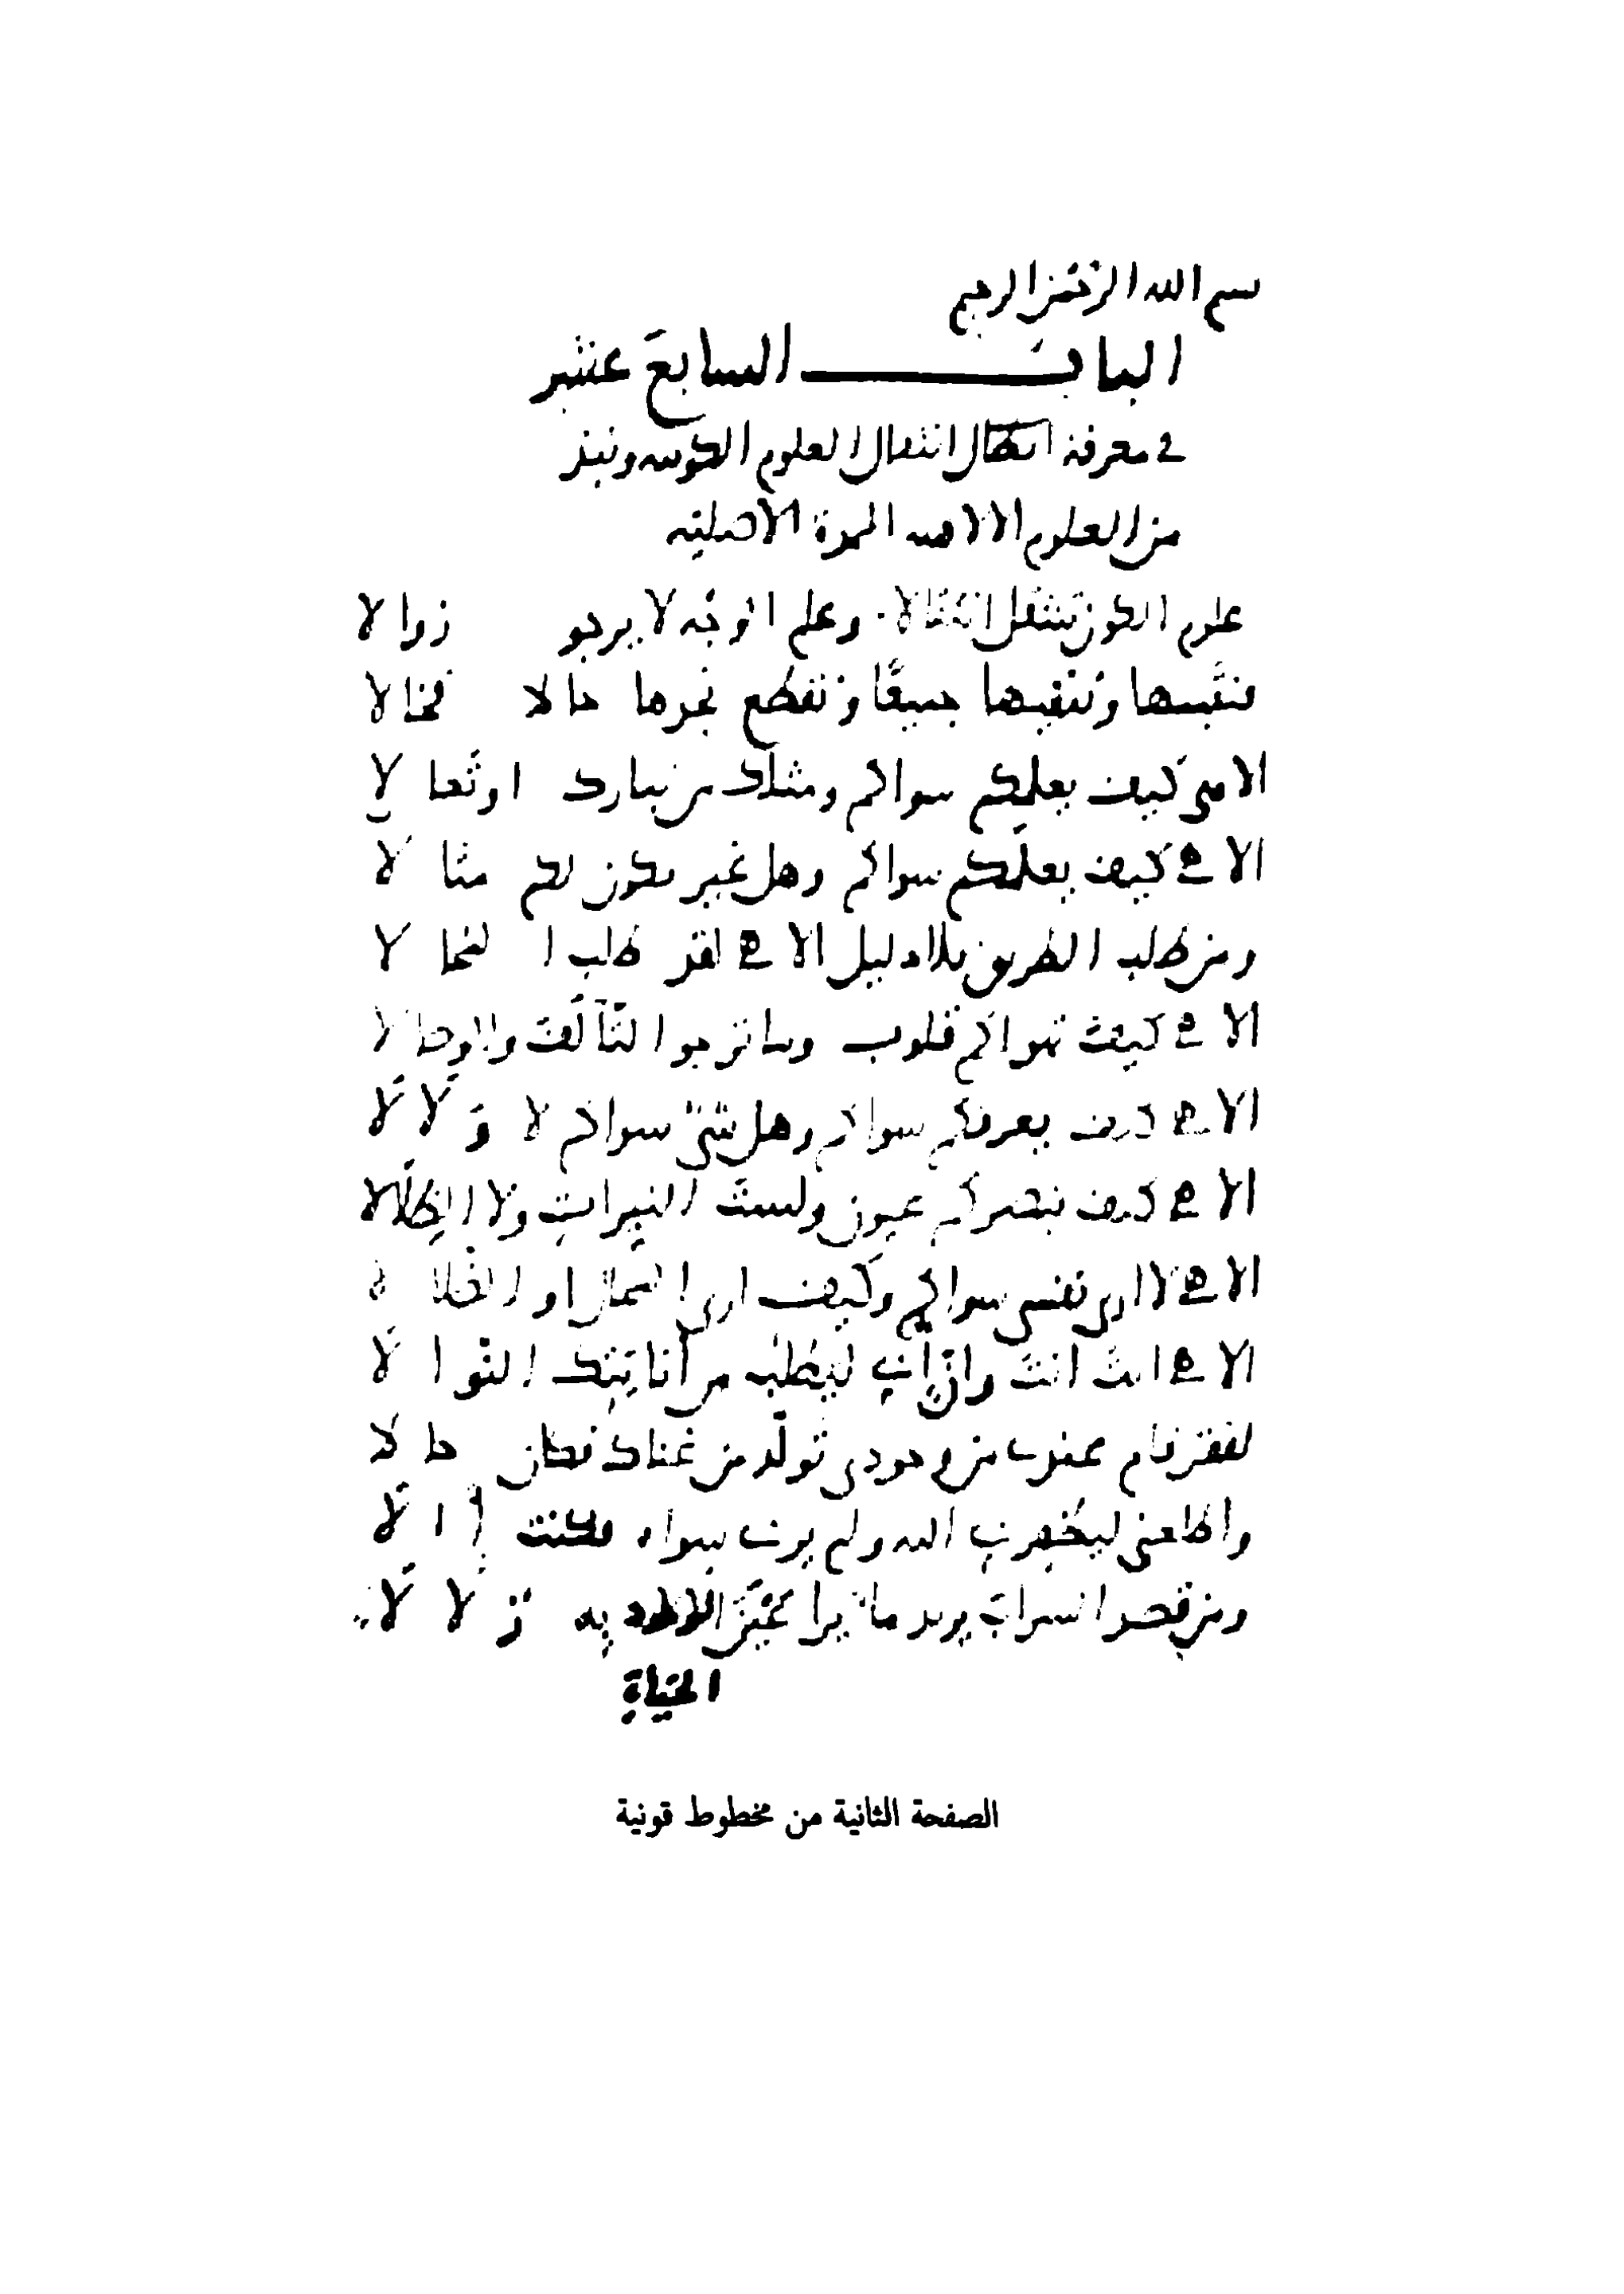 بسم الله الرحمن الرحيم
الباب السابع عشر
في معرفة انتقال العلوم الكونيه ونبذ
من العلوم الالاهيه الممدة الاصليه
علوم الكون تنتقل انتقالا وعلم الوجه لا يرجو زوالا
فنثبتها وننفيها جميعًا ونقطع نجدها حالا فحالا
الاهي كيف يعلمكم سواكم ومثلك من تبارك او تعالا
الاهي كيف يعلمكم سواكم وهل غير يكون لكم مثالا
ومن طلب الطريق بلا دليل الاهي لقد طلب المحالا
الاهي كيف تهواكم قلوب وما ترجوا التآلف والوصالا
الاهي كيف يعرفكم سواكم وهل شيٌ سواكم لا ولا لا
الاهي كيف تبصركم عيون ولست النيرات ولا الظلالا
الاهي لا ارى نفسي سواكم وكيف ارى المحال او الضلالا
الاهي انت انت وان اني ليطلب من انايتك النوالا
لفقر قام عندي من وجودي تولد من غناك فكان حالا
واطلعني ليظهرني اليه ولم يرني سواه فكنت آلا
ومن قصد السراب يريد ماء يرا عين الحياة به زلالا
الحياة
الصفحة الثانية من مخطوط قونية